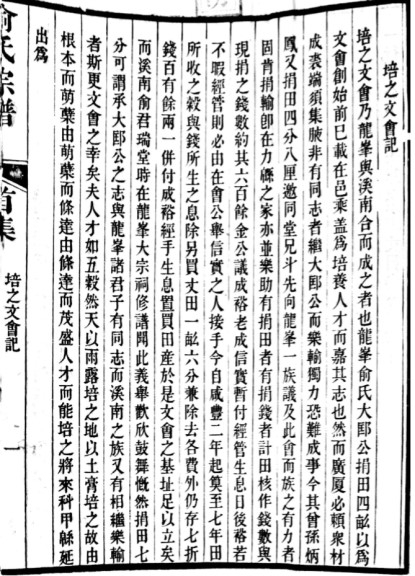 培之文會記
培之文會乃龍峯與溪南合而成之者也龍峯俞氏大郎公捐田四畝以爲
文會創始前已載在邑乘蓋爲培養人才而嘉其志也然而廣厦必頼衆材
成裘端須集腋非有同志者繼大郎公而樂輸獨力恐難成事今其曾孫炳
鳳又捐田四分八厘邀同堂兄斗先向龍峯一族議及此會而族之有力者
固肯捐輸卽在力緜之家亦並樂助有捐田者有捐錢者計田核作錢數與
現捐之錢數約其六百餘金公議成裕老成信實暫付經管生息日後裕若
不暇經管則必由在會公舉信實之人接手今自咸豐二年起算至七年田
所收之穀與錢所生之息除另買𠀋田一畝六分兼除去各費外仍存七折
錢百有餘兩一併付成裕經手生息置買田産於是文會之基址足以立矣
而溪南俞君瑞堂時在龍峯大宗祠修譜聞此義舉歡欣鼓舞慨然捐田七
分可謂承大郎公之志與龍峯諸君子有同志而溪南之族又有相繼樂輸
者斯更文會之幸矣夫人才如五穀然天以雨露培之地以土膏培之故由
根本而萌蘖由萌蘖而條達由條達而茂盛人才而能培之將來科甲緜延
出爲
俞氏宗譜
首集
培之文會記
一